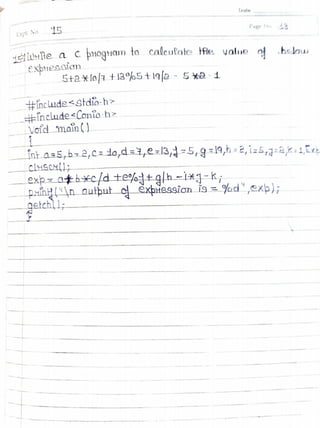 Date
Expt. No. 15 Page No. 19
15) Write a C program to calculate the value of below
expression
5+2*10/7 +13%5+19/2 - 5*2-1
#include<stdio.h>
#include<Conio.h>
Void main()
{
int a=5,b=2,c=10,d=7,e=13,f=5,g=19,h=2,i=5,j=2,k=1,Exp;
clrscr();
exp = a+b*c/d +e%f+g/h -i*j-k;
printf("\n output of expression is = %d",exp);
getch();
}